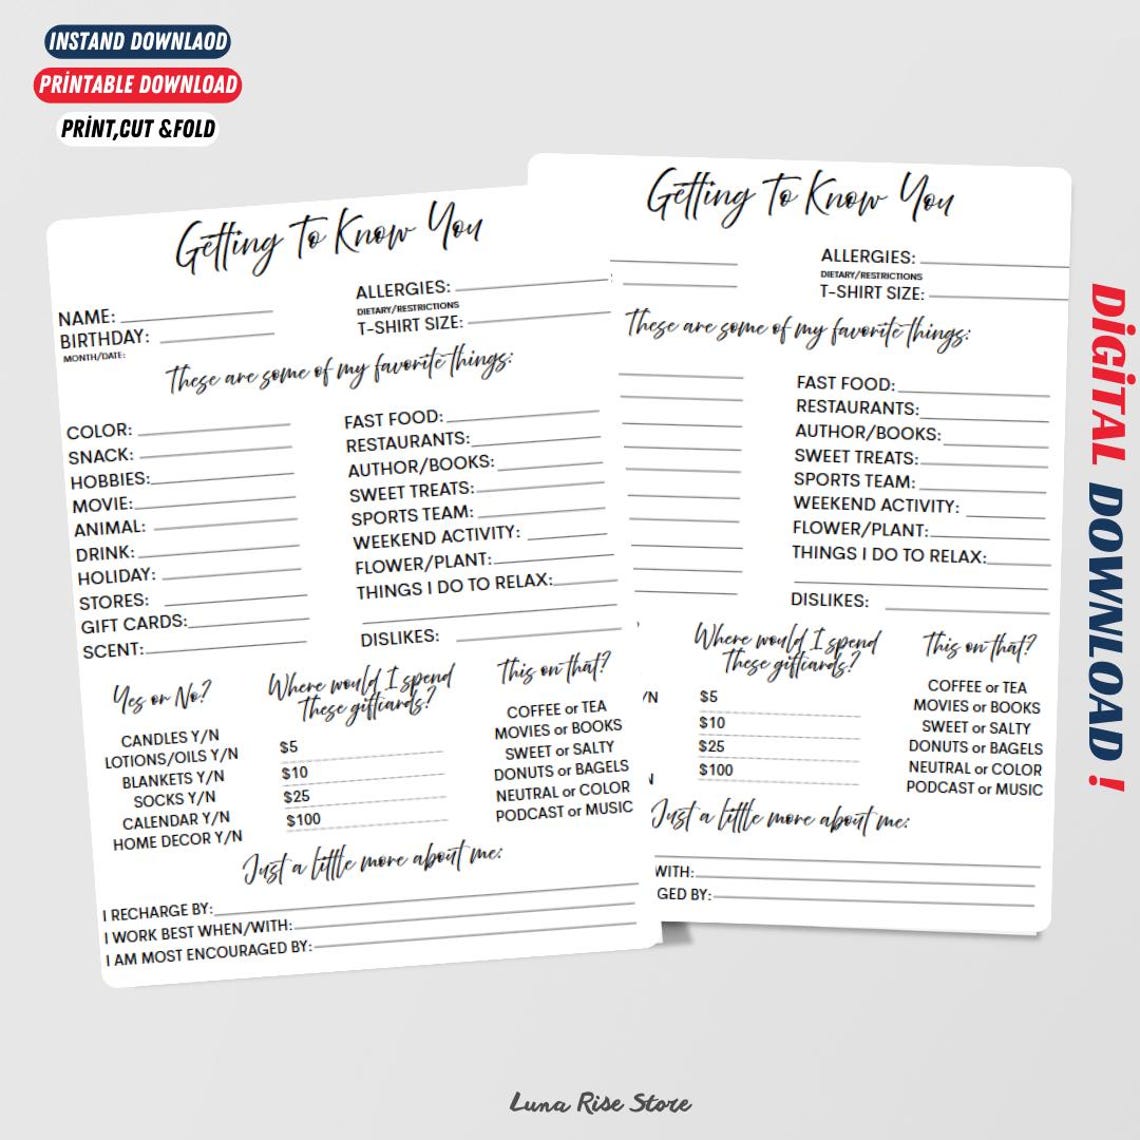 INSTAND DOWNLAOD
PRİNTABLE DOWNLOAD
PRİNT,CUT &FOLD
Getting To Know You
NAME:
BIRTHDAY:
MONTH/DATE:
ALLERGIES:
DIETARY/RESTRICTIONS
T-SHIRT SIZE:
These are some of my favorite things:
COLOR:
SNACK:
HOBBIES:
MOVIE:
ANIMAL:
DRINK:
HOLIDAY:
STORES:
GIFT CARDS:
SCENT:
FAST FOOD:
RESTAURANTS:
AUTHOR/BOOKS:
SWEET TREATS:
SPORTS TEAM:
WEEKEND ACTIVITY:
FLOWER/PLANT:
THINGS I DO TO RELAX:
DISLIKES:
Yes or No?
CANDLES Y/N
LOTIONS/OILS Y/N
BLANKETS Y/N
SOCKS Y/N
CALENDAR Y/N
HOME DECOR Y/N
Where would I spend
these giftcards?
$5
$10
$25
$100
This or that?
COFFEE or TEA
MOVIES or BOOKS
SWEET or SALTY
DONUTS or BAGELS
NEUTRAL or COLOR
PODCAST or MUSIC
Just a little more about me:
I RECHARGE BY:
I WORK BEST WHEN/WITH:
I AM MOST ENCOURAGED BY:
Getting To Know You
ALLERGIES:
DIETARY/RESTRICTIONS
T-SHIRT SIZE:
These are some of my favorite things:
FAST FOOD:
RESTAURANTS:
AUTHOR/BOOKS:
SWEET TREATS:
SPORTS TEAM:
WEEKEND ACTIVITY:
FLOWER/PLANT:
THINGS I DO TO RELAX:
DISLIKES:
/N
N
Where would I spend
these giftcards?
$5
$10
$25
$100
This or that?
COFFEE or TEA
MOVIES or BOOKS
SWEET or SALTY
DONUTS or BAGELS
NEUTRAL or COLOR
PODCAST or MUSIC
Just a little more about me:
WITH:
GED BY:
DİGİTAL DOWNLOAD !
Luna Rise Store